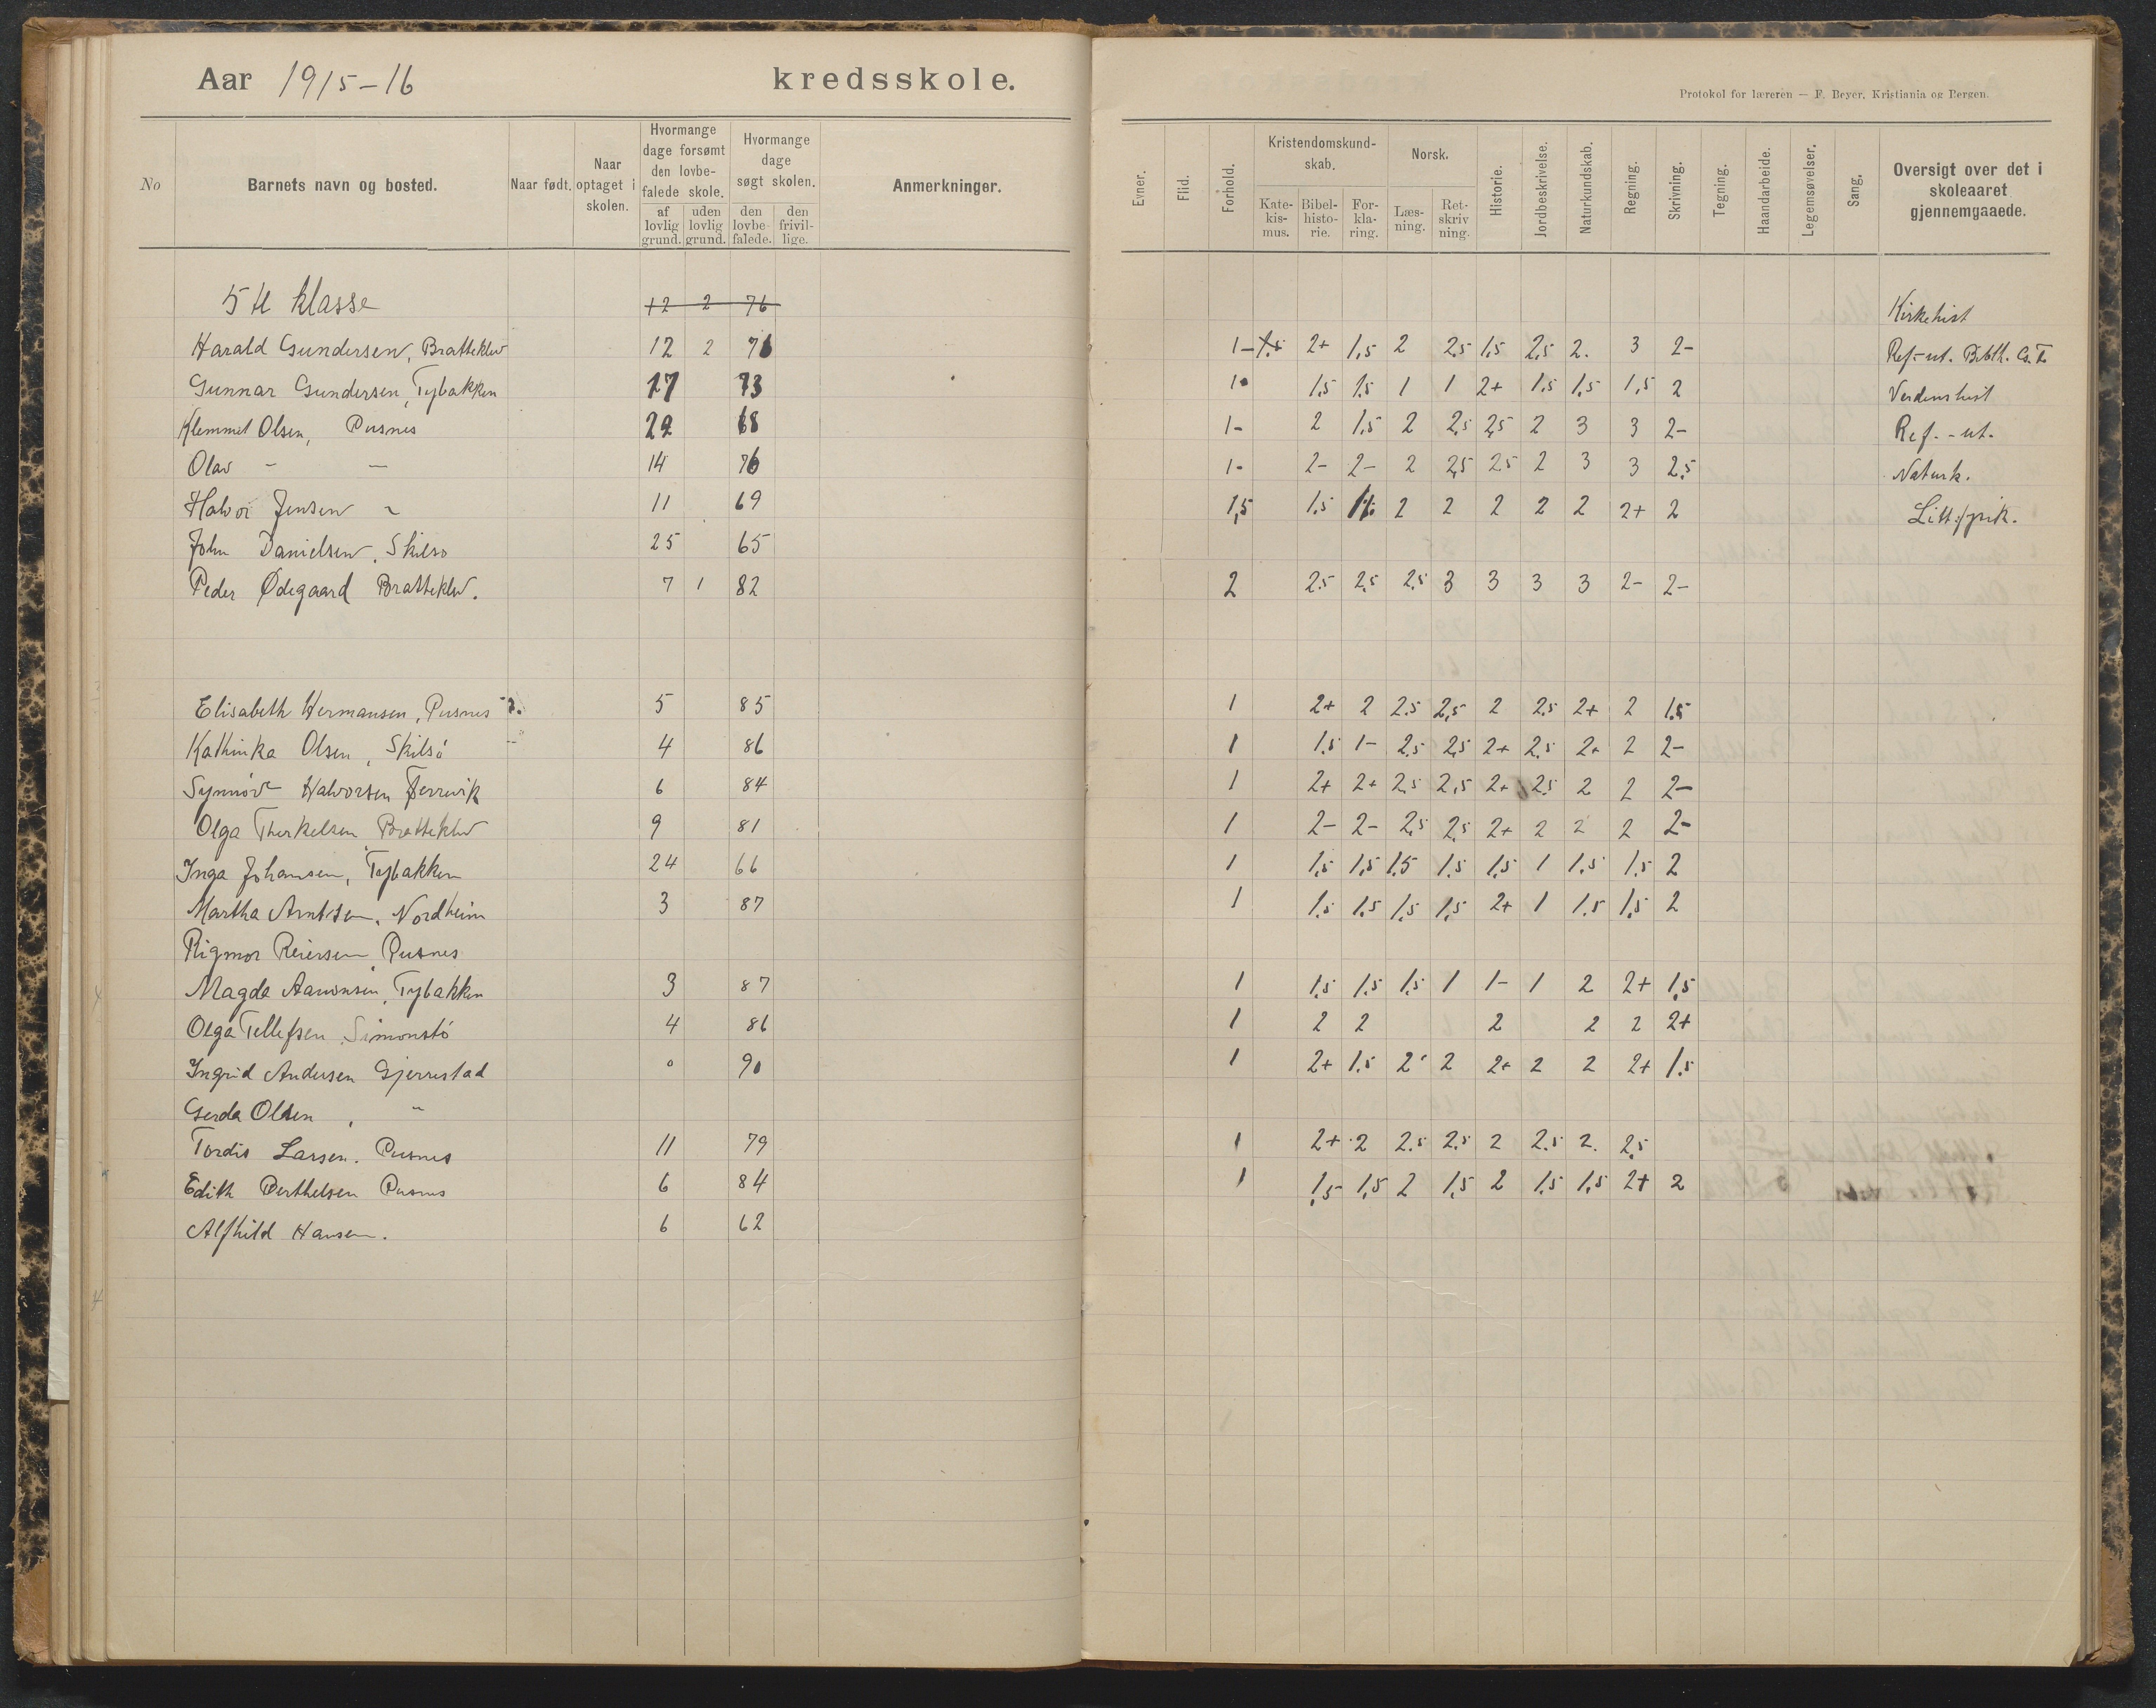 Aar 1915-16 kredsskole.
No Barnets navn og bosted. Naar født. Naar optaget i skolen. Hvormange dage forsømt den lovbefalede skole. af lovlig grund. uden lovlig grund. Hvormange dage søgt skolen. den lovbefalede. den frivillige. Anmerkninger.
5te klasse 12 2 76
Harald Gundersen, Bratteklev 12 2 76
Gunnar Gundersen, Tybakken 17 73
Klemmet Olsen, Pusnes 22 68
Olav - - 14 76
Halvor Jensen - 11 69
John Danielsen, Skilsø 25 65
Peder Ødegaard Bratteklev. 7 1 82
Elisabeth Hermansen, Pusnes 5 85
Kathinka Olsen, Skilsö 4 86
Synnöve Halvorsen Færvik 6 84
Olga Therkelsen Bratteklev 9 81
Inga Johansen, Tybakken 24 66
Martha Arntsen, Nordheim 3 87
Rigmor Reiersen Pusnes
Magda Aanonsen, Tybakken 3 87
Olga Tellefsen, Simonstö 4 86
Ingrid Andersen Gjerrestad 0 90
Gerda Olsen, "
Tordis Larsen. Pusnes 11 79
Edith Berthelsen Pusnes 6 84
Alfhild Hansen. 6 62
Protokol for læreren — F. Beyer, Kristiania og Bergen.
Evner. Flid. Forhold. Kristendomskundskab. Katekismus. Bibelhistorie. Forklaring. Norsk. Læsning. Retskrivning. Historie. Jordbeskrivelse. Naturkundskab. Regning. Skrivning. Tegning. Haandarbeide. Legemsøvelser. Sang. Oversigt over det i skoleaaret gjennemgaaede.
Kirkehist
1- 1,5 2+ 1,5 2 2,5 1,5 2,5 2. 3 2- Ref-ut. Bibelh. G.T.
1- 1,5 1,5 1 1 2+ 1,5 1,5 1,5 2 Verdenshist
1- 2 1,5 2 2,5 2,5 2 3 3 2- Ref.-ut.
1- 2- 2- 2 2,5 2,5 2 3 3 2,5 Naturk.
1,5 1,5 2 2 2 2 2 2+ 2
2 2,5 2,5 2,5 3 3 3 3 2- 2-
1 2+ 2 2,5 2,5 2 2,5 2+ 2 1,5
1 1,5 1- 2,5 2,5 2+ 2,5 2+ 2 2-
1 2+ 2+ 2,5 2,5 2+ 2,5 2 2 2-
1 2- 2- 2,5 2,5 2+ 2 2 2 2-
1 1,5 1,5 1,5 1,5 1,5 1 1,5 1,5 2
1 1,5 1,5 1,5 1,5 2+ 1 1,5 1,5 2
1 1,5 1,5 1,5 1 1- 1 2 2+ 1,5
1 2 2 2 2 2 2+
1 2+ 1,5 2 2 2+ 2 2 2+ 1,5
1 2+ 2 2,5 2,5 2 2,5 2. 2,5
1 1,5 1,5 2 1,5 2 1,5 1,5 2+ 2